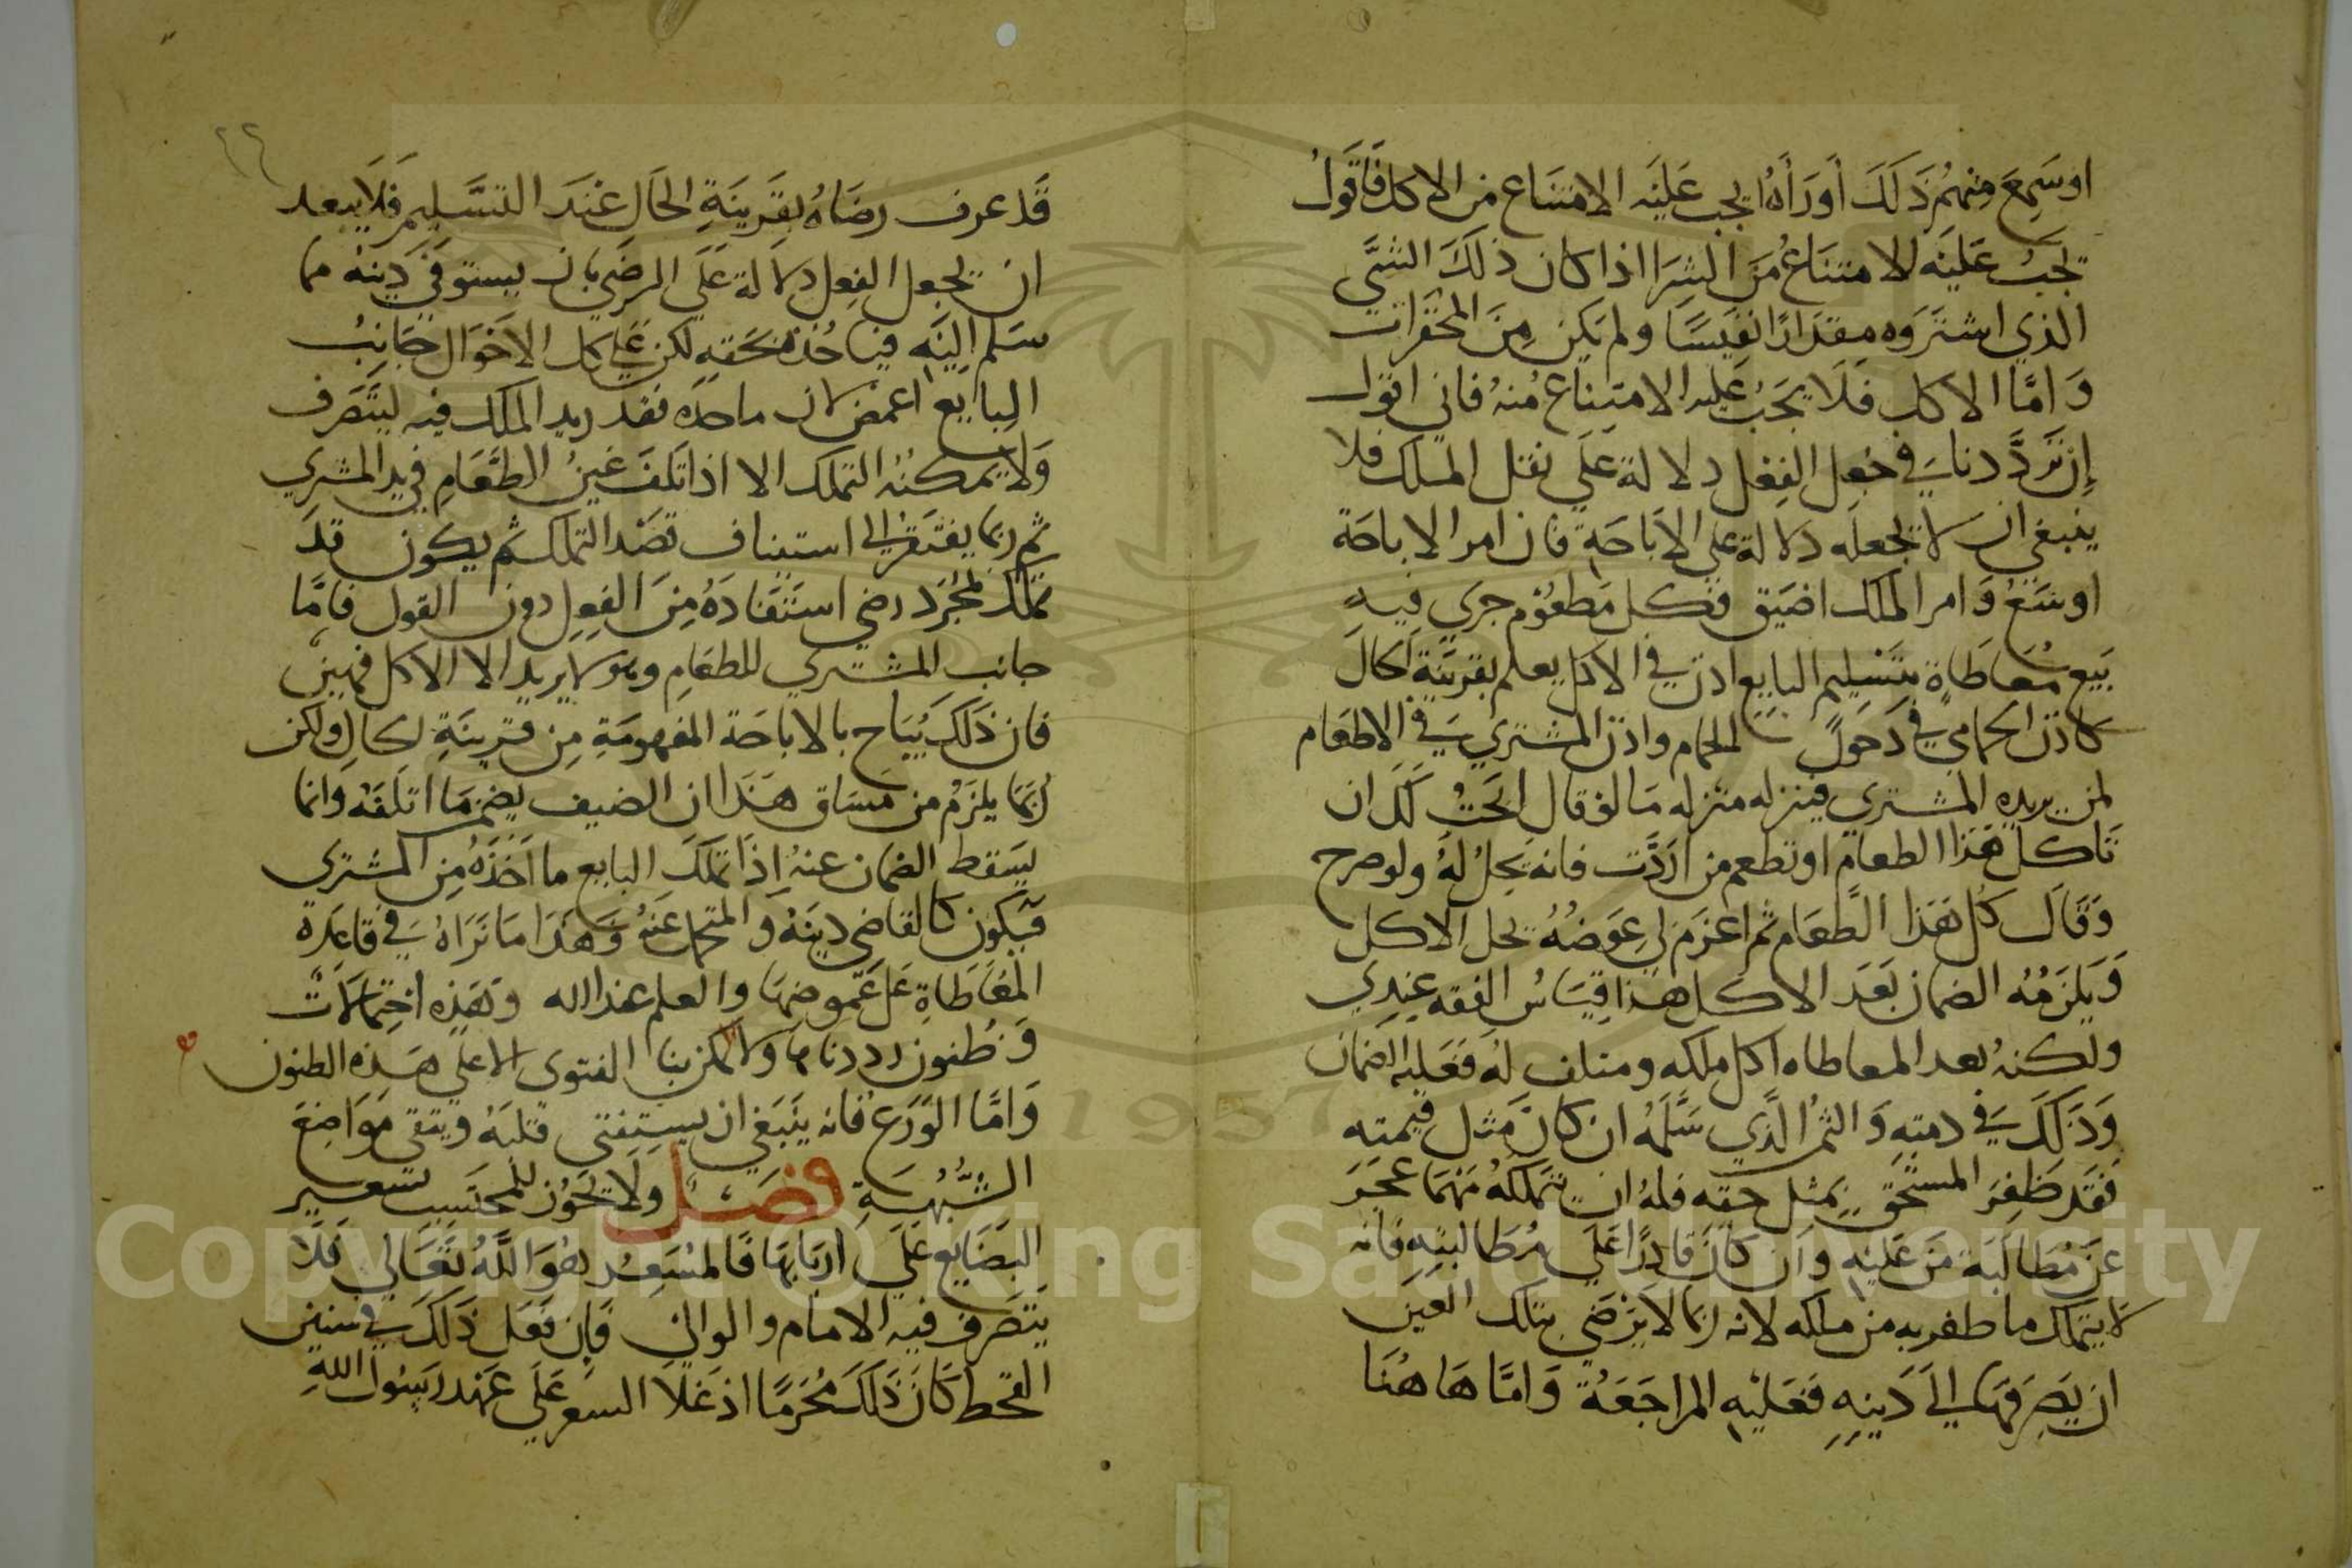 او سَمِعَ منهُم ذَلَكَ أورَأهُ ايجب عَليَه الامتنَاع من الاكل فَاقَولُ
تجبُ عَلينَه الامتنَاعُ مَن الشِرَا اذا كان ذلَكَ الشَّي
الذي اشترَوه مِقدَارًا نفيسًا ولم يَكن مِنَ المحقرات
وَامَّا الاكل فَلَا يَجَبُ عليه الامتِناع مُنهُ فاني اقول
إن تَردَّدنا في جَعل الفِعل دلالة عَلي نقل الملك فلا
ينبغي ان لا تجعلَه دلالة علي الابَاحَة فان امر الاباحَة
اوسَعُ وَامر الملك اضيَق فكل مَطعُوم جري فيهِ
بَيع مُعَاطَاة بتَسْلِيم البايع اذن في الاكل يعلم بقرينَة الحَال
كاذن الحمامي في دَحَول الحمام واذن المشتري في الاطعَام
لمن يريده المشتري فينزله منزله مَا لو قال ابَحَتُ لَكَ ان
تَاكل هَذا الطعام او تطعم من ارَدَّت فانه يحِلُ لهُ ولو صرح
وَقَالَ كُل هَذا الطَّعَام ثم اعزَم لي عِوَضُهُ يحل الاكل
وَيلزَمُهُ الضمان بَعَد الاكل هذا قِيَاسُ الفقه عِندِي
ولكنهُ بعد المعاطاه اكل ملكه ومتلف لهُ فَعَليه الضَمَان
وَذَلَكَ في دمتِهِ وَالثمُ الذَّي سَلَّمَهُ ان كانَ مَثل قِيمته
فَقَد ظَفِرَ المستَحق بِمثِل حَقِه فلهُ ان يَتمَلكهُ مَهمَا عَجَزَ
عَن مُطَالَبَة مَن عَليَهِ وَان كَانَ قَادرًا عَلي مُطَالبتِهِ فَانَه
لَا يتملك ما ظفر به من ملكه لانه ربما لا يَرضَي بتلك العَين
ان يَصرفهَا الي دَينِهِ فَعَليْهِ المراجَعَةُ وَامَّا هَا هُنَا
٢٢
قَد عرف رضَاهُ بقَرينَةِ الحَال عْندَ التسَّليم فَلَا يَبعد
ان تجعل الفِعل دلالة عَلَي الرضَي بان يستوفَي دَينهُ مما
سَلم اليَه فياخُذهُ بحَقهِ لكن عَلي كل الاحَوال جَانِبُ
البايع اغمض لان ما حذه نقد يريد الملك فيه ليتَصَرف
وَلَا يَمكنُهُ التملك الا اذا تَلَفَ عَينُ الطَّعَامِ في يد المشري
ثم ربما يفتَقر الي استيناف قصَد التملك ثم يكون قد
تملَّك بمُجَرَد رضي استَفَادَهُ مِنَ الفِعِل دون القول فامَّا
جانب المشتري للطعَامِ وهو لا يريد الا الاكل فهين
فان ذَلَكَ يُبَاح بالاباحَة المفهومَةِ مِن قرينَةِ الحالِ ولكن
رُبمَا يلزَمُ من مَسَاق هَذَا ان الضيف يضمن مَا اتلفَهُ وانما
يسَقط الضمان عنهُ إذَا تملكَ البايع ما اَخَذَهُ مِن المشتري
فَيكون كالقاضي دينَهُ وَالمتحمل عَنهُ فَهَذَا مَا نَرَاهُ في قاعَدة
المُعَاطَاةِ عَلي غَموضِهَا والعلم عند الله وَهَذِه اخِتِمَالَات
وَظُنون رددناهَا وَلا يمكن بنا الفتوى الا علي هَذه الظنون
وَامَّا الوَرَع فَانه يَنَبَغي ان يستِفتي قلبَهُ ويتقي مَوَاضِعَ
الشُّبهَةِ فَصَل ولَا يَجَوُز للمحتَسب تسعير
البضَايع عَلَي اربَابهَا فَالمسَعِرُ هُوَ اللَّهُ تَعَالي فَلَا
يَتصَرف فيه الامام والوالي فَإن فَعَل ذَلَكَ في سنين
القحط كانَ ذَلَكَ مُحَرَمًا اذ غَلَا السعر عَلَي عَهد رَسُول اللهِ